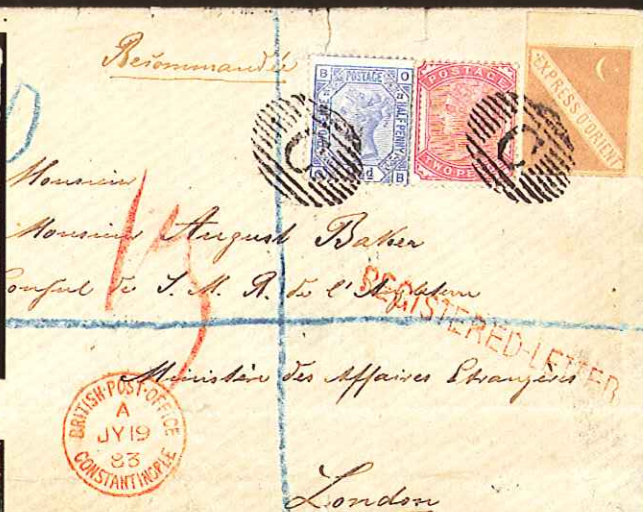 Recommandée
B POSTAGE O
HALFPENNY
B
POSTAGE
TWO PENCE
EXPRESS D'ORIENT
C
C
Monsieur
Monsieur August Baker
Consul de S. M. R. de l'Angleterre
REGISTERED-LETTER
Ministère des Affaires Etrangères
13
BRITISH·POST·OFFICE
A
JY 19
83
CONSTANTINOPLE
London